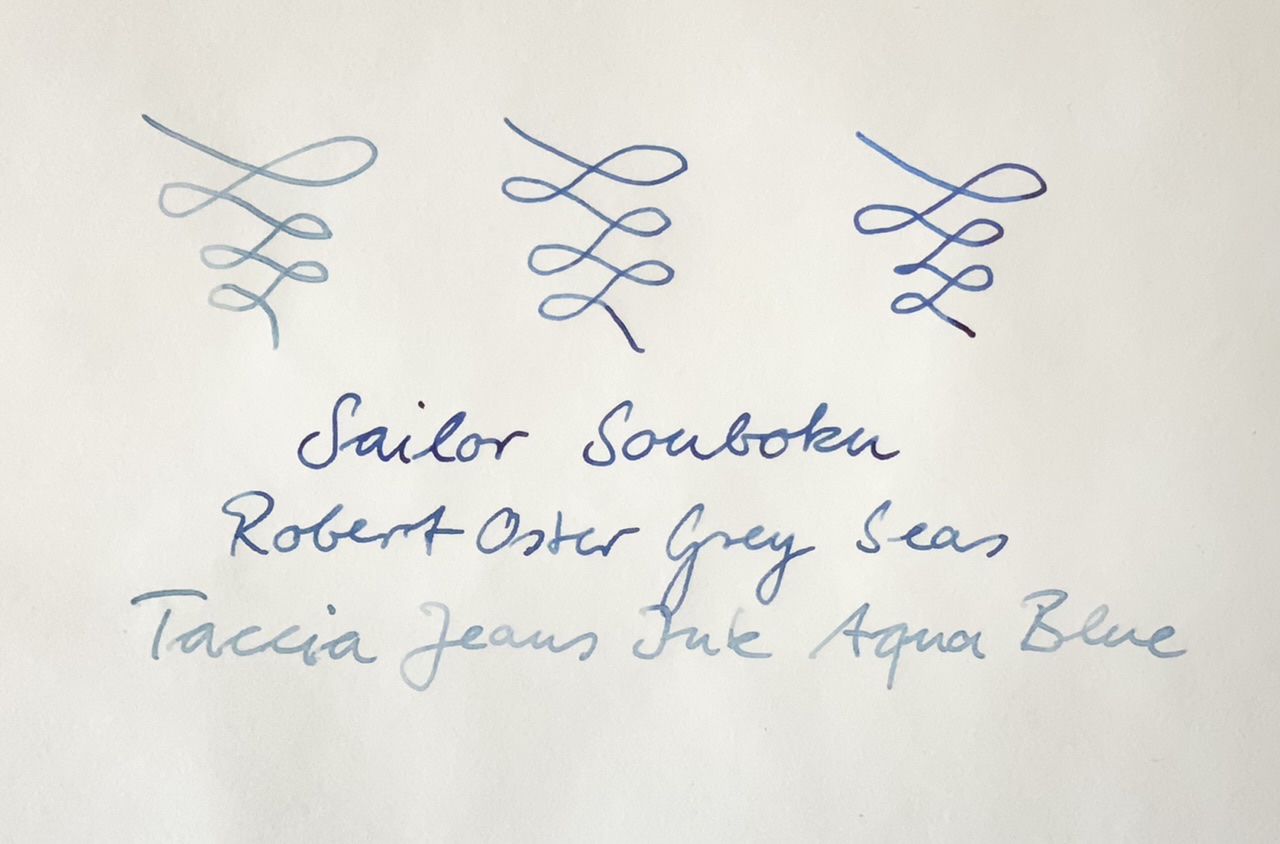 Sailor Souboku
Robert Oster Grey Seas
Taccia Jeans Ink Aqua Blue